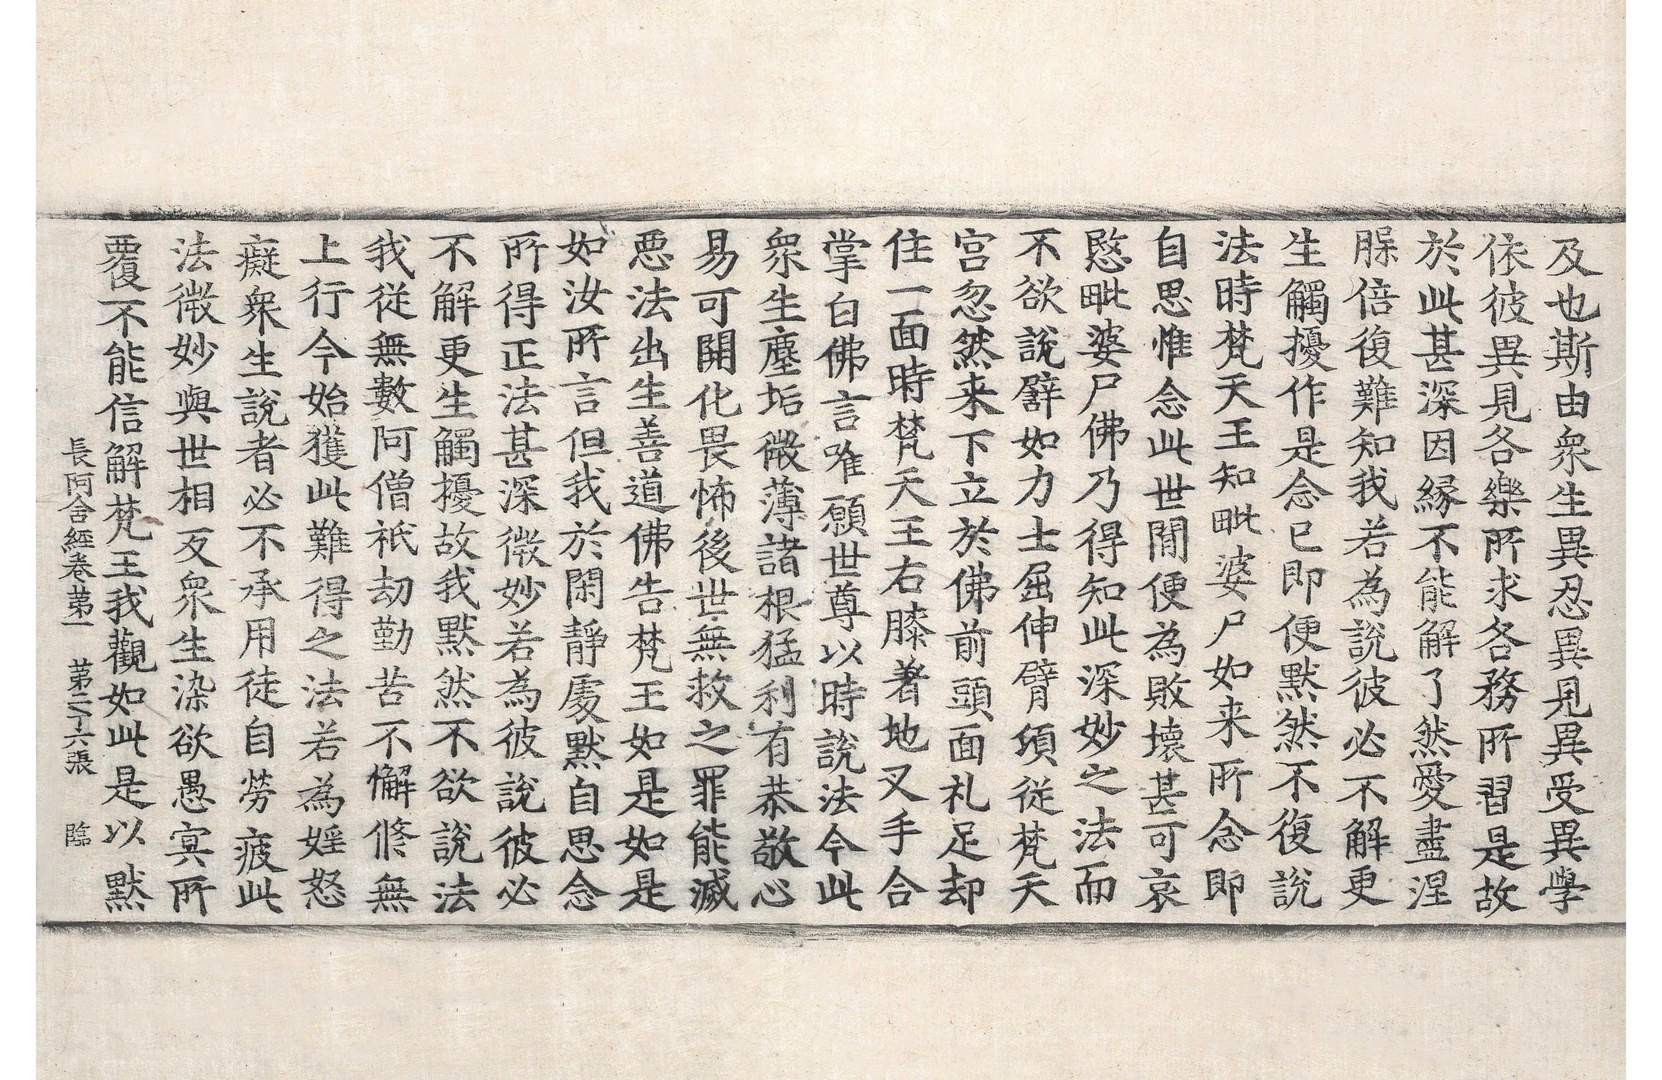 及也斯由衆生異忍異見異受異學
依彼異見各樂所求各務所習是故
於此甚深因緣不能解了然愛盡涅
槃倍復難知我若為說彼必不解更
生觸擾作是念已即便默然不復說
法時梵天王知毗婆尸如来所念即
自思惟念此世間便為敗壞甚可哀
愍毗婆尸佛乃得知此深妙之法而
不欲說譬如力士屈伸臂頃從梵天
宮忽然来下立於佛前頭面礼足却
住一面時梵天王右膝著地叉手合
掌白佛言唯願世尊以時說法今此
衆生塵垢微薄諸根猛利有恭敬心
易可開化畏怖後世無救之罪能滅
惡法出生善道佛告梵王如是如是
如汝所言但我於閑靜處默自思念
所得正法甚深微妙若為彼說彼必
不解更生觸擾故我默然不欲說法
我從無數阿僧祇劫勤苦不懈修無
上行今始獲此難得之法若為婬怒
癡衆生說者必不承用徒自勞疲此
法微妙與世相反衆生染欲愚冥所
覆不能信解梵王我觀如此是以默
長阿含經卷第一 第二十六張 臨